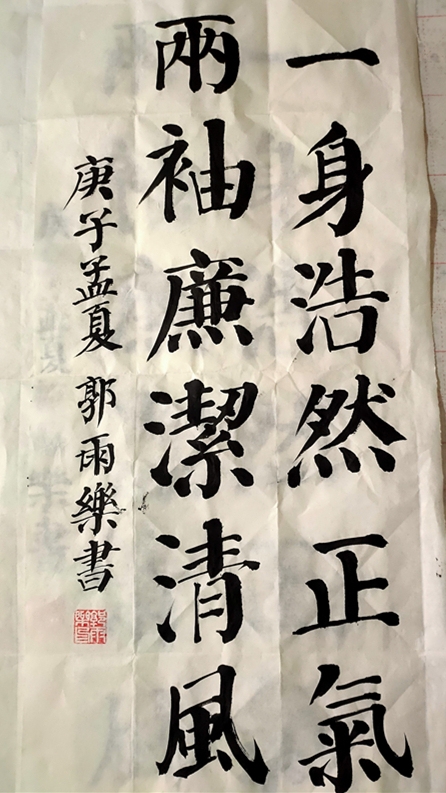 一身浩然正氣
兩袖廉潔清風
庚子孟夏 郭雨樂書